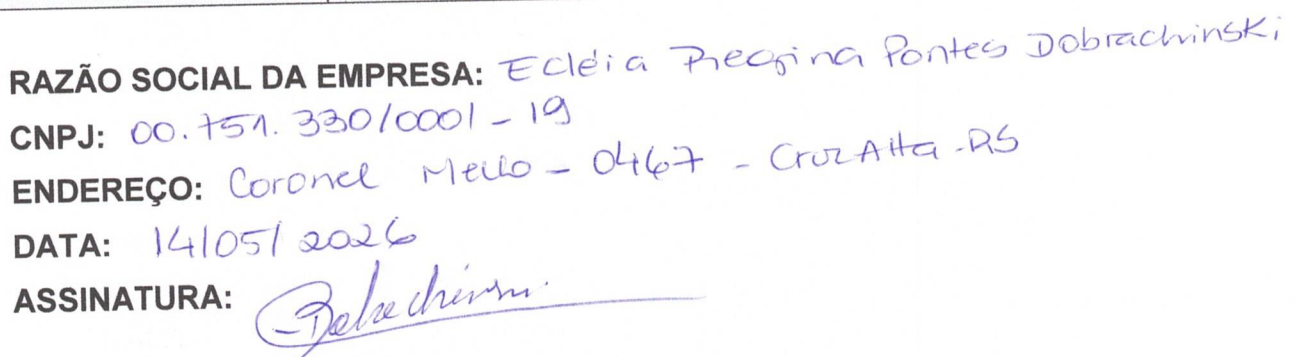 RAZÃO SOCIAL DA EMPRESA: Ecléia Regina Pontes Dobrachinski
CNPJ: 00.751.330/0001-19
ENDEREÇO: Coronel Mello - 0467 - Cruz Alta - RS
DATA: 14/05/2026
ASSINATURA: